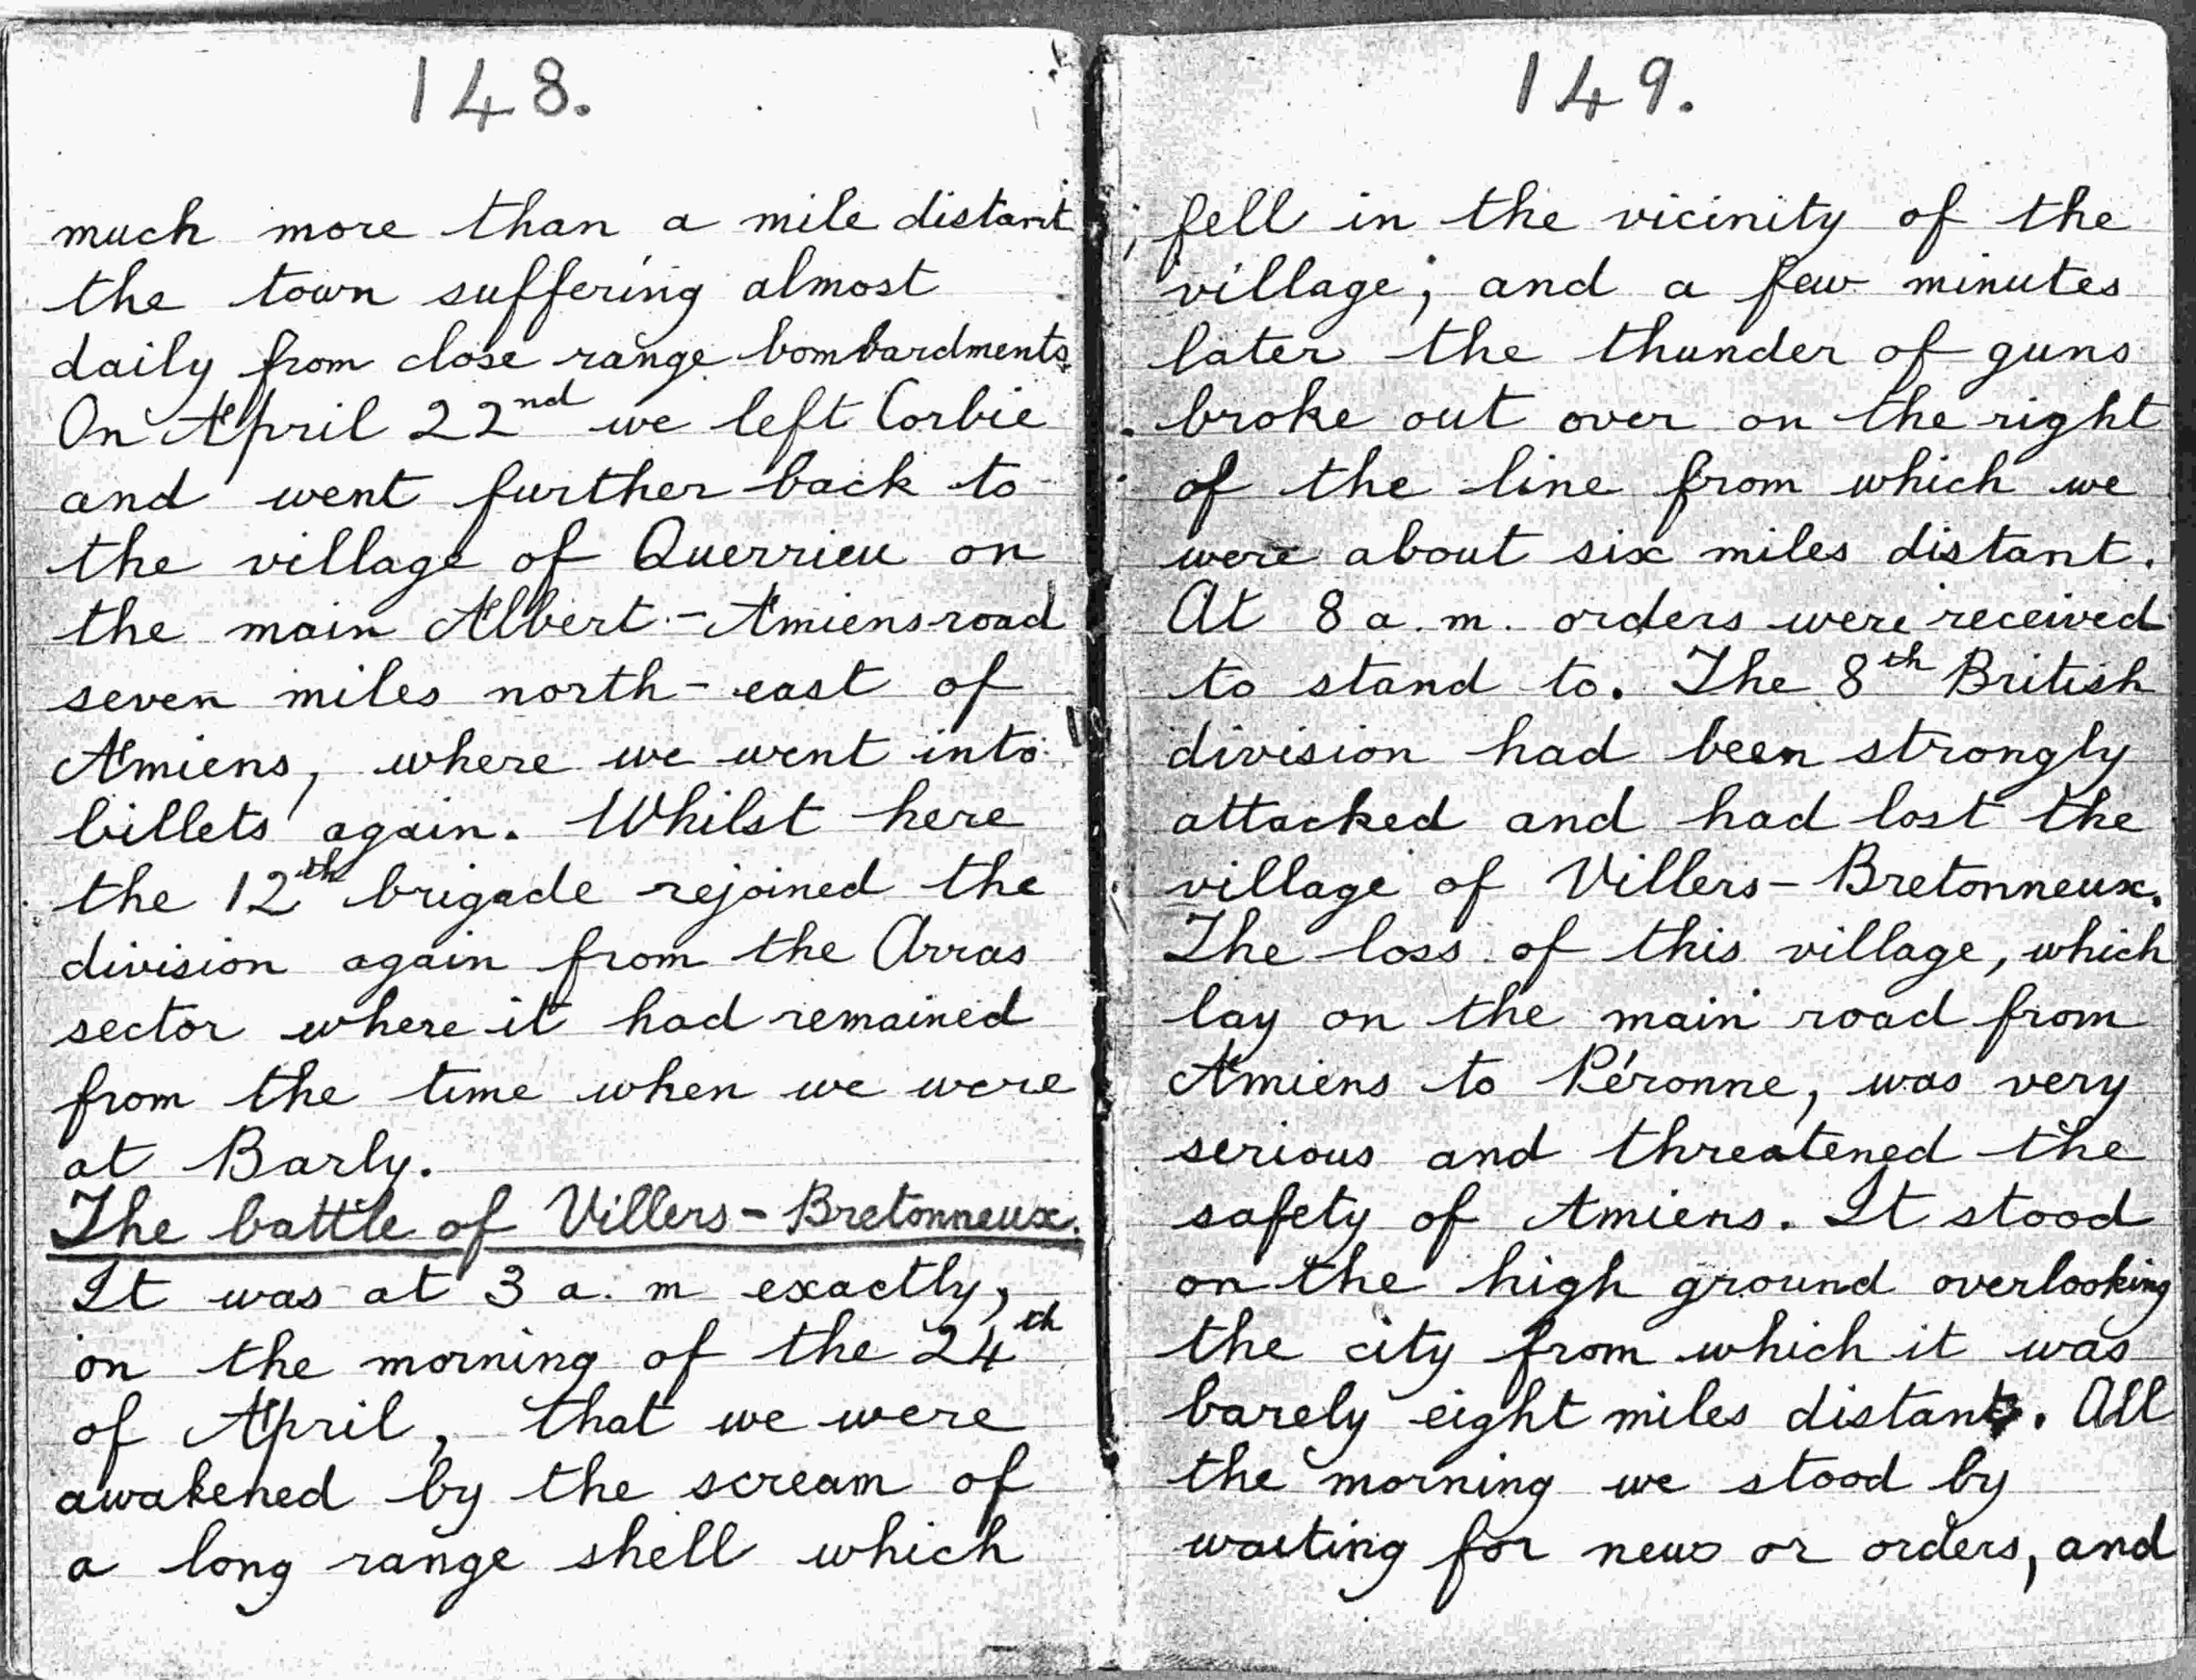 148.
much more than a mile distant
the town suffering almost
daily from close range bombardments.
On April 22nd we left Corbie
and went further back to
the village of Querrieu on
the main Albert-Amiens road
seven miles north-east of
Amiens, where we went into
billets again. Whilst here
the 12th brigade rejoined the
division again from the Arras
sector where it had remained
from the time when we were
at Barly.
The battle of Villers-Bretonneux.
It was at 3 a.m exactly,
on the morning of the 24th
of April, that we were
awakened by the scream of
a long range shell which
149.
fell in the vicinity of the
village; and a few minutes
later the thunder of guns
broke out over on the right
of the line from which we
were about six miles distant.
At 8 a.m. orders were received
to stand to. The 8th British
division had been strongly
attacked and had lost the
village of Villers-Bretonneux.
The loss of this village, which
lay on the main road from
Amiens to Péronne, was very
serious and threatened the
safety of Amiens. It stood
on the high ground overlooking
the city from which it was
barely eight miles distant. All
the morning we stood by
waiting for news or orders, and